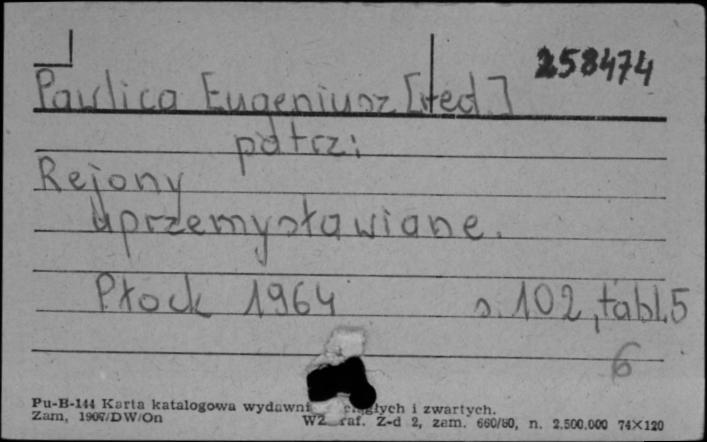 258474
Pawlica Eugeniusz [red.]
patrz:
Rejony
uprzemysławiane.
Płock 1964 s. 102, tabl. 5
6
Pu-B-144 Karta katalogowa wydawni ciągłych i zwartych.
Zam, 1967/DW/On WZ raf. Z-d 2, zam. 660/60, n. 2.500.000 74×120